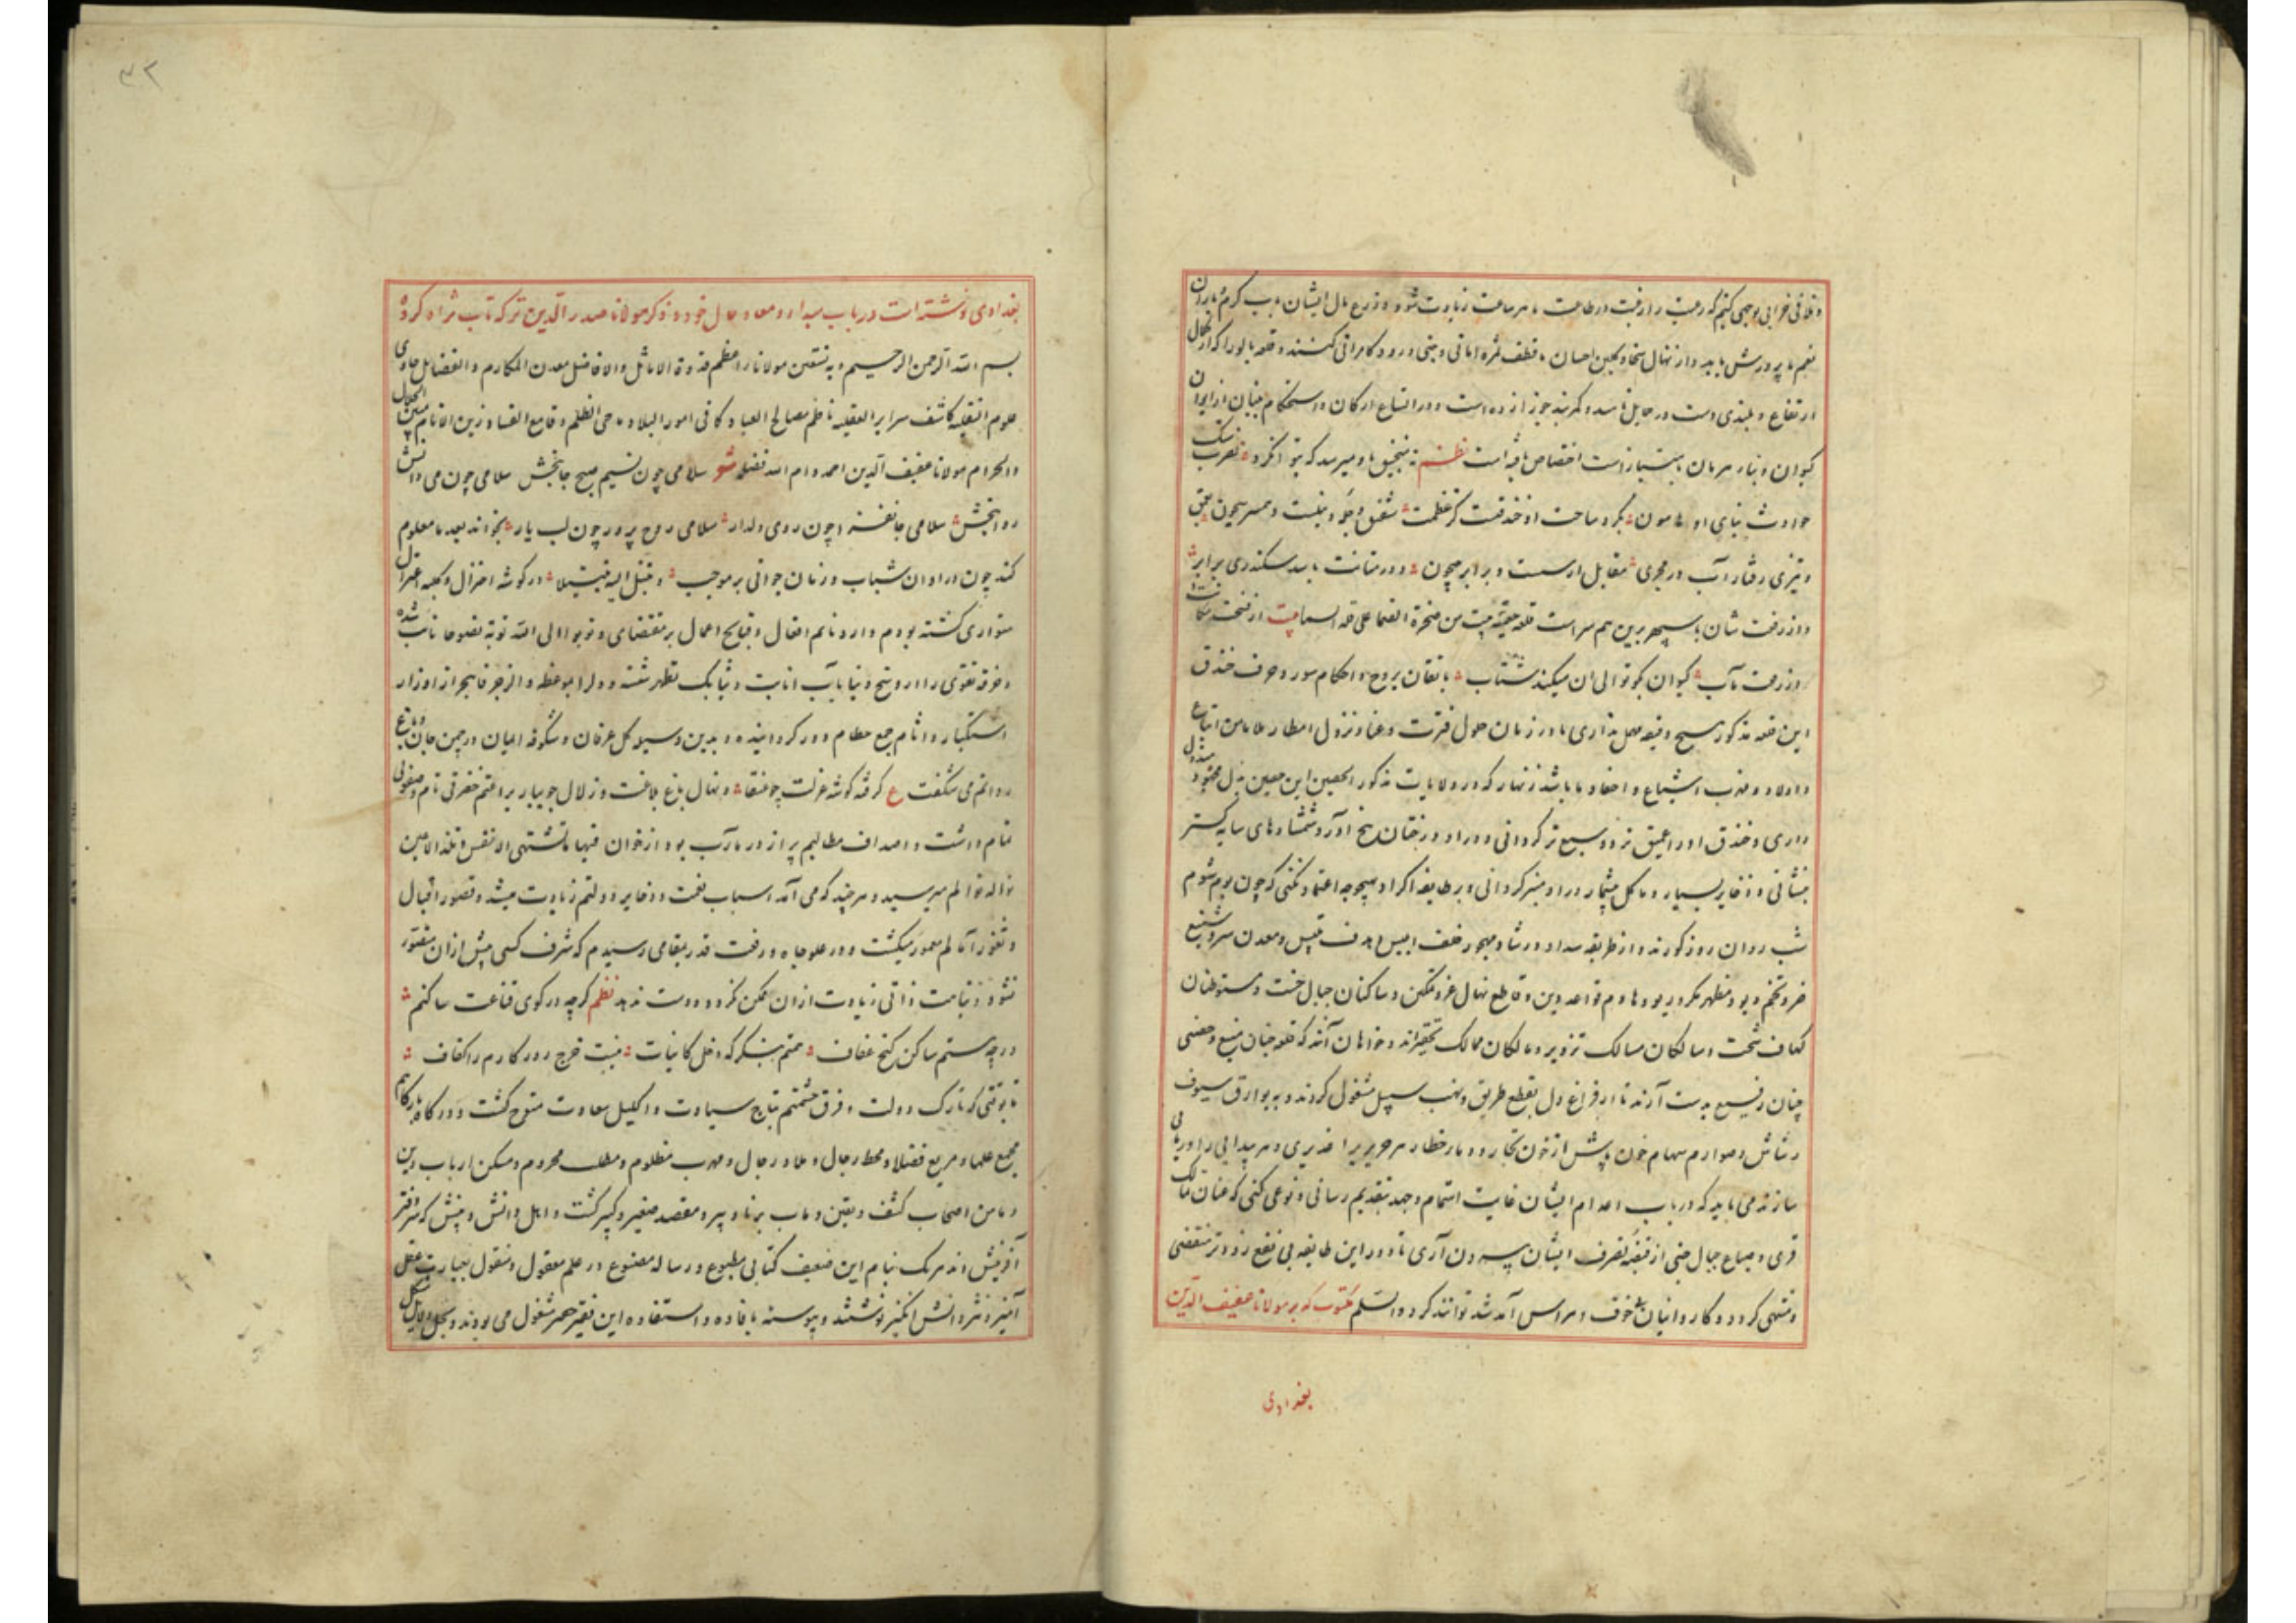 و تلافی خرابی بوجهی کنیم که رعیت را رغبت در طاعت هر ساعت زیادت شود و زرع مال ایشان بآب کرم باران
نعم ما پرورش یابد و از نهال سخا و بحین احسان ما قطف ثمره امانی و جنی ورود کامرانی کنند و قلعه یالورا که از کمال
ارتفاع و بلندی دست در حمایل ناسد و کمربند جوزا زده است و در اتساع ارکان و استحکام بنیان از ایوان
کیوان و بنای هرمان امتیاز است اختصاص یافته است نظم منجنیق باو میرسد که تواند کرد تصرف سنک
حوادث بنای او هامون بگرد ساحت او خندقست کز عظمت شفق و نیلست و همسر سیحون بعمق
و تیزی رفتار آب در مجری مقابل ارسست و برابر جیحون و در متانت با سد سکندری برابر
و از رفعت شان با سپهر برین هم سر است قلعه من صخرة الصما علی قلة السما بیت از فسحت
و ز رفعت مآب کیوان بکوتوالی آن میکند شتاب با تقان بروج و احکام سور و حرف خندق
این قلعه مذکور هیچ دقیقه مهمل نذاری تا در زمان حلول فترت و عنا و نزول امطار بلا مامن اتباع
و اولاد و مهرب اشیاع و احفاد ما باشد زنهار که در ولایات مذکور الحصین این حصین بذل مجهود مبذول
داری و خندق او را عمیق تر و وسیع تر کردانی و در او درختان بیخ آور و شمشادهای سایه کستر
بنشانی و ذخایر بسیار و ماکل بیشمار در او مدخر کردانی و بر طایفه اکراد بهیچ وجه اعتماد نکنی که چون بوم شوم
شب روان روز کورند و از طریقه سداد و رشاد مهجور خلف ابلیس اند و تلبیس و معدن شر و تشنیع
ضر و تخم و بود مظهر مکر و ریو و هادم قواعد دین و قاطع نهال عز و تمکین و ساکنان جبال خشت و متوطنان
کهاف شحت و سالکان مسالک تزویر و مالکان ممالک تحقیراند و خواهان آنند که قلعه چنان منیع و حصنی
چنان رفیع بدست آرند تا از فراغ دل بقطع طریق و نهب سبیل مشغول کردند و به بوارق سیوف
رشاش و صوارم سهام خون پاش از خون تجار و دمار خطار هر جزیره را غدیری و هر بیدایی را دریایی
سازند می باید که در باب اعدام ایشان غایت اهتمام و جهد بتقدیم رسانی و نوعی کنی که عنان تمالک
قری و ضیاع جبال جنی از قبضه تصرف ایشان بیرون آری تا دور این طایفه بی نفع زودتر منقضی
و منتهی کردد و کاروانیان بی خوف و هراس آمد شد توانند کرد والسلم مکتوب که بر مولانا عفیف الدین
بغدادی
۳۲
بغدادی نوشته است در باب مبدا و معاد و حال خود و ذکر مولانا صدر الدین ترکه تاب ثراه کرده
بسم الله الرحمن الرحیم و به نستعین مولانا اعظم قدوة الاماثل و الافاضل معدن المکارم و الفضایل حاوی
علوم النقلیه کاشف سرایر العقلیه ناظم مصالح العباد کافی امور البلاد ماحی الظلم و قامع الفساد زین الانام مبین الحلال
و الحرام مولانا عفیف الدین احمد دام الله فضله شعر سلامی چون نسیم صبح جانبخش سلامی چون می دانش
روانبخش سلامی جانفزا چون روی دلدار سلامی روح پرور چون لب یار بخواند بعده معلوم
کند چون در اوان شباب و زمان جوانی بر موجب و تبتل الیه تبتیلا در کوشه اختزال و کلبه اعتزال
متواری کشته بودم و از ذمایم افعال و قبایح اعمال بر مقتضای و توبوا الی الله توبة نصوحا تایب شده
و خرقه تقوی را از وسخ دنیا بآب انابت و ثیابک فطهر شسته و دل را بموعظه و الرجز فاهجر از اوزار
استکبار و آثام جمع حطام دور کردانیده و بدین وسیله کل عرفان و شکوفه ایمان در چمن جان و باغ
روانم می شکفت ع کرفته کوشه عزلت چو عنقا و نهال باغ بلاغت و زلال جویبار براعتم خضرتی تام و صفوتی
تمام داشت و اصداف مطالبم پر از درر مآرب بود از خوان فیها ما تشتهی الانفس و تلذ الاعین
نواله نوالم میرسید و هر چند که می آمد اسباب نعمت و ذخایر دولتم زیادت میشد و قصور اقبال
و ثغور آمالم معمور میکشت و در علو جاه و رفعت قدر بمقامی رسیدم که شرف کسی بیش از آن متصور
نشود و نباهت ذاتی زیادت از آن ممکن نکردد و دست ندهد نظم کرچه در کوی قناعت ساکنم
ورچه هستم ساکن کنج عفاف همتم بنکر که دخل کاینات نیست خرج روز کارم را کفاف
تا بوقتی که تارک دولت و فرق حشمتم بتاج سیادت و اکلیل سعادت متوج کشت و درکاه بارکاهم
مجمع علما و مربع فضلا و محط رحال و ملاذ رجال و مهرب مظلوم و مطلب محروم و مسکن ارباب دین
و مامن اصحاب کشف و یقین و مآب برنا و پیر و مقصد صغیر و کبیر کشت و اهل دانش و بینش که سر دفتر
آفرینش اند هر یک بنام این ضعیف کتابی مطبوع و رساله مصنوع در علم معقول و منقول بعبارت عقل
آمیز و نثر دانش انکیز نوشتند و پیوسته بافاده و استفاده این فقیر حقیر مشغول می بودند و بحل دلایل مشکل